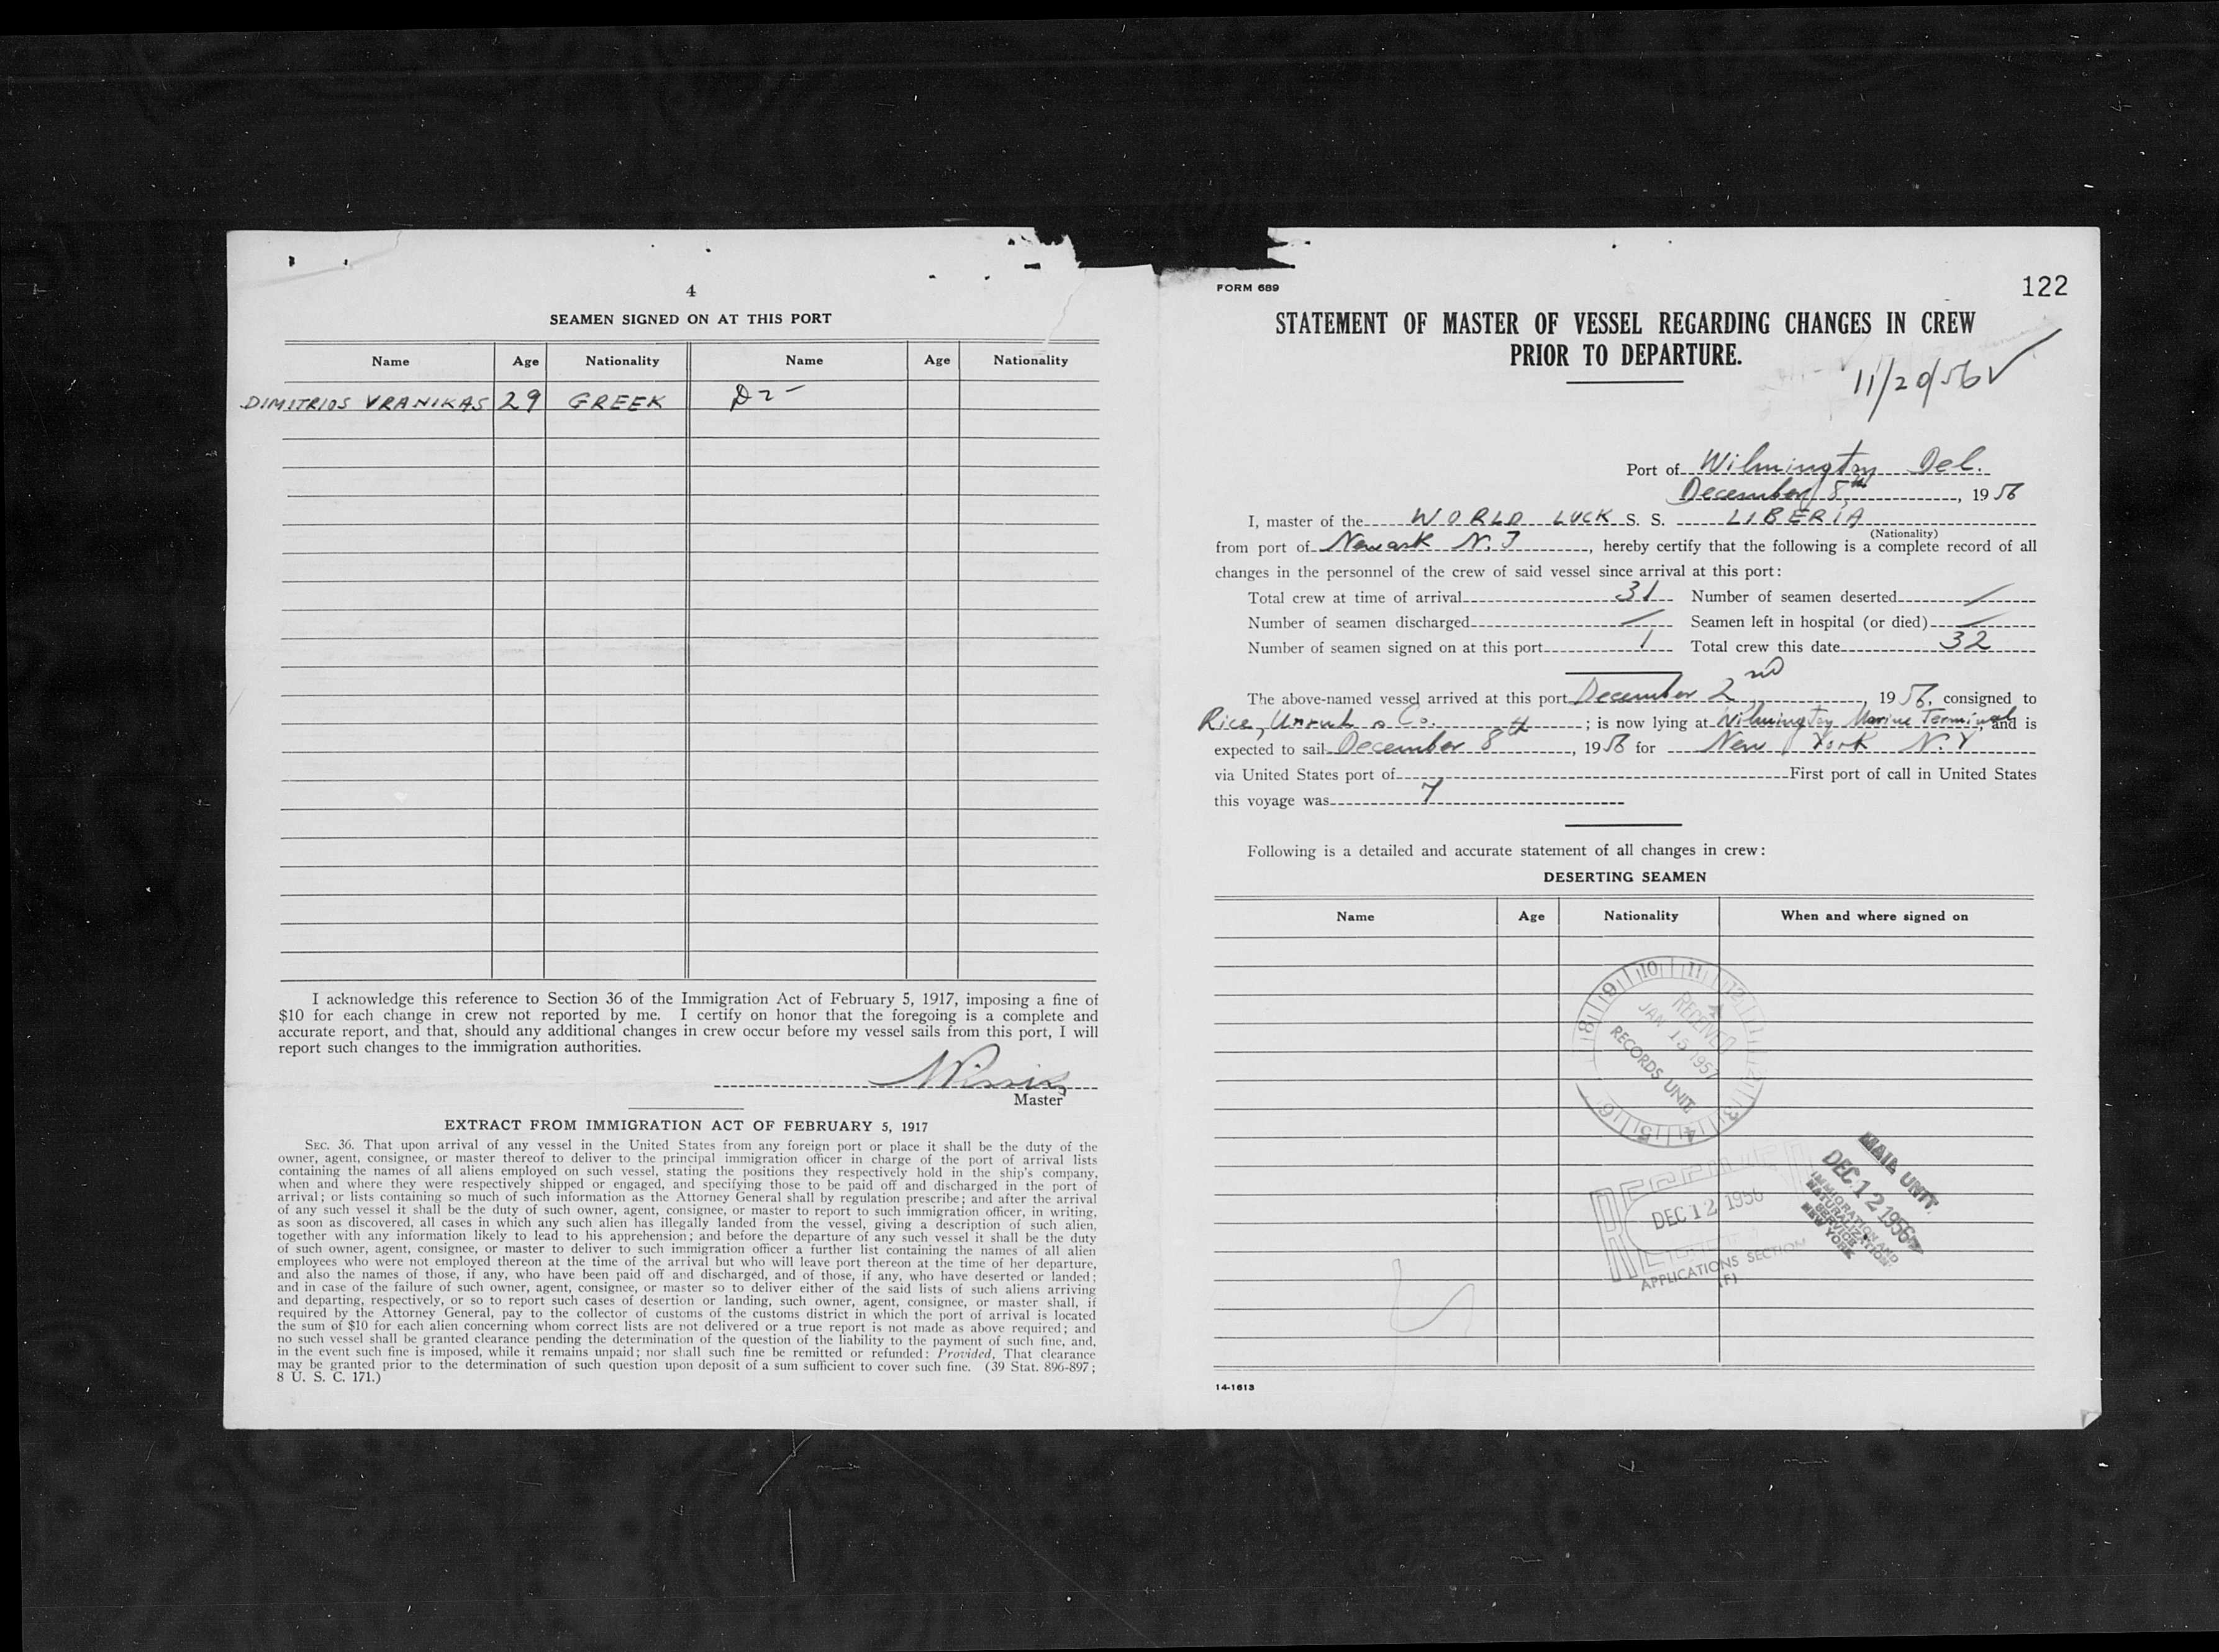 4
SEAMEN SIGNED ON AT THIS PORT
Name Age Nationality Name Age Nationality
DIMITRIOS VRANIKAS 29 GREEK D2-
I acknowledge this reference to Section 36 of the Immigration Act of February 5, 1917, imposing a fine of
$10 for each change in crew not reported by me. I certify on honor that the foregoing is a complete and
accurate report, and that, should any additional changes in crew occur before my vessel sails from this port, I will
report such changes to the immigration authorities.
Master
EXTRACT FROM IMMIGRATION ACT OF FEBRUARY 5, 1917
SEC. 36. That upon arrival of any vessel in the United States from any foreign port or place it shall be the duty of the
owner, agent, consignee, or master thereof to deliver to the principal immigration officer in charge of the port of arrival lists
containing the names of all aliens employed on such vessel, stating the positions they respectively hold in the ship's company,
when and where they were respectively shipped or engaged, and specifying those to be paid off and discharged in the port of
arrival; or lists containing so much of such information as the Attorney General shall by regulation prescribe; and after the arrival
of any such vessel it shall be the duty of such owner, agent, consignee, or master to report to such immigration officer, in writing,
as soon as discovered, all cases in which any such alien has illegally landed from the vessel, giving a description of such alien,
together with any information likely to lead to his apprehension; and before the departure of any such vessel it shall be the duty
of such owner, agent, consignee, or master to deliver to such immigration officer a further list containing the names of all alien
employees who were not employed thereon at the time of the arrival but who will leave port thereon at the time of her departure,
and also the names of those, if any, who have been paid off and discharged, and of those, if any, who have deserted or landed;
and in case of the failure of such owner, agent, consignee, or master so to deliver either of the said lists of such aliens arriving
and departing, respectively, or so to report such cases of desertion or landing, such owner, agent, consignee, or master shall, if
required by the Attorney General, pay to the collector of customs of the customs district in which the port of arrival is located
the sum of $10 for each alien concerning whom correct lists are not delivered or a true report is not made as above required; and
no such vessel shall be granted clearance pending the determination of the question of the liability to the payment of such fine, and,
in the event such fine is imposed, while it remains unpaid; nor shall such fine be remitted or refunded: Provided, That clearance
may be granted prior to the determination of such question upon deposit of a sum sufficient to cover such fine. (39 Stat. 896-897;
8 U. S. C. 171.)
FORM 689
122
STATEMENT OF MASTER OF VESSEL REGARDING CHANGES IN CREW
PRIOR TO DEPARTURE.
11/20/56 ✓
Port of Wilmington Del.
December 8th, 1956
I, master of the WORLD LUCK S. S. LIBERIA
(Nationality)
from port of Newark N.J, hereby certify that the following is a complete record of all
changes in the personnel of the crew of said vessel since arrival at this port:
Total crew at time of arrival 31 Number of seamen deserted /
Number of seamen discharged / Seamen left in hospital (or died) /
Number of seamen signed on at this port 1 Total crew this date 32
The above-named vessel arrived at this port December 2nd, 1956, consigned to
Rice, Unruh & Co.; is now lying at Wilmington Marine Terminal, and is
expected to sail December 8th, 1956 for New York N.Y
via United States port of First port of call in United States
this voyage was
Following is a detailed and accurate statement of all changes in crew:
DESERTING SEAMEN
Name Age Nationality When and where signed on
RECEIVED
JAN 15 1957
RECORDS UNIT
RECEIVED
DEC 12 1956
APPLICATIONS SECTION
(F)
MAIL UNIT
DEC 12 1956
IMMIGRATION AND
NATURALIZATION
SERVICE
NEW YORK
14-1613